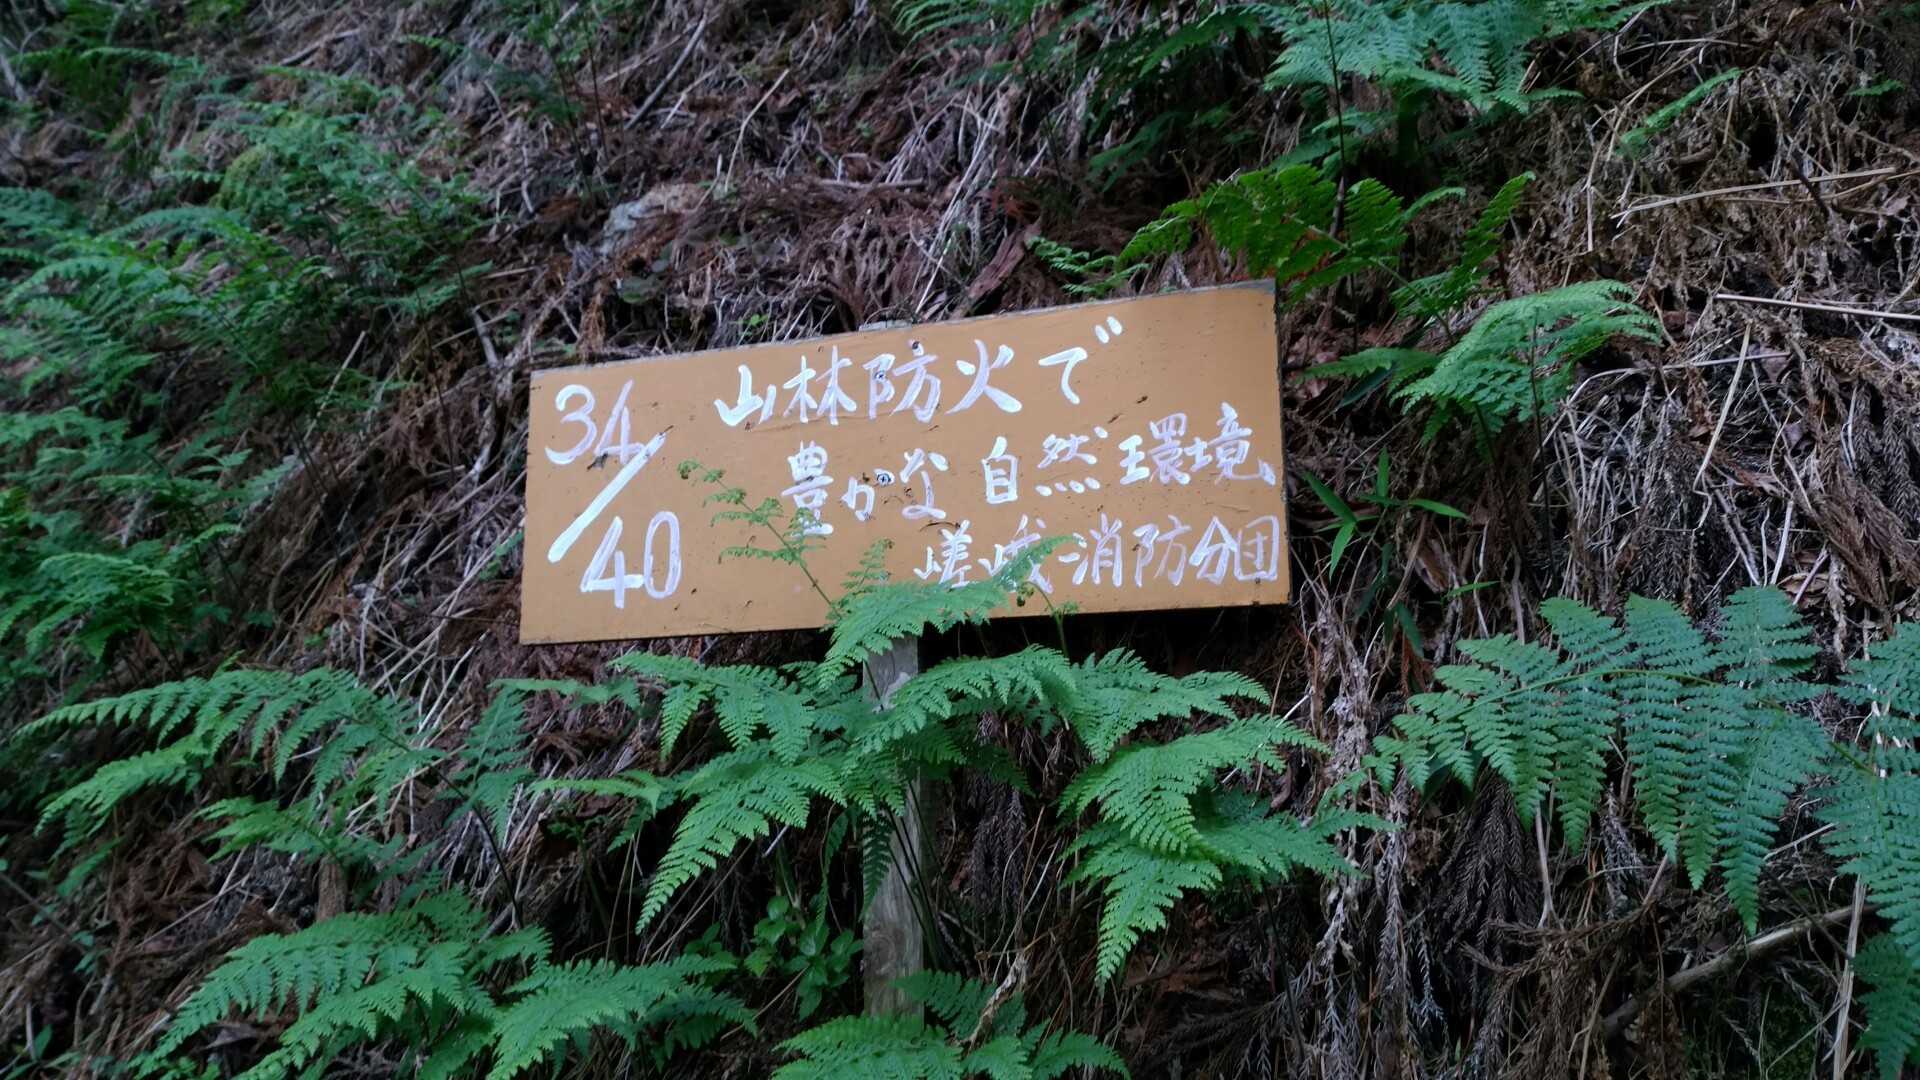 34/40
山林防火で
豊かな自然環境
嵯峨消防分団